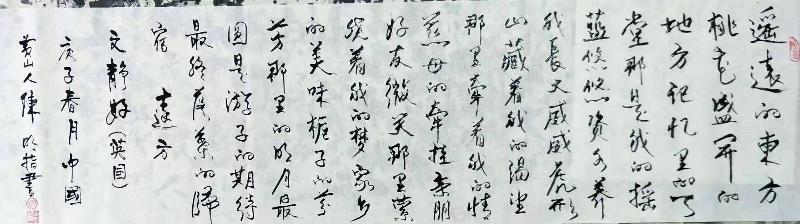 遥远的东方
桃花盛开的
地方记忆里的
堂那是我的摇
蓝悠悠资水养
我长大威威虎形
山藏着我的渴望
那里牵着我的情
慈母的牵挂亲朋
好友微笑那里萦
绕着我的梦家乡
的美味栀子的芬
芳那里的明月最
圆是游子的期待
最终落叶的归
宿 远方
文静好（英国）
庚子春月中國
黄山人陳 指書